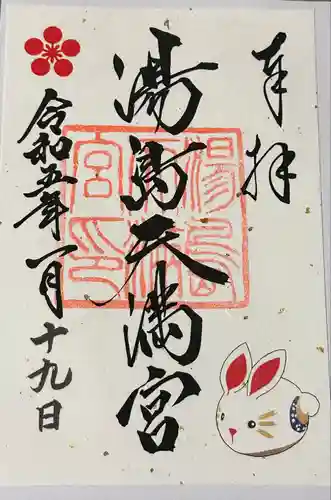 奉拝
湯島天満宮
令和五年一月十九日
湯島
天満
宮印